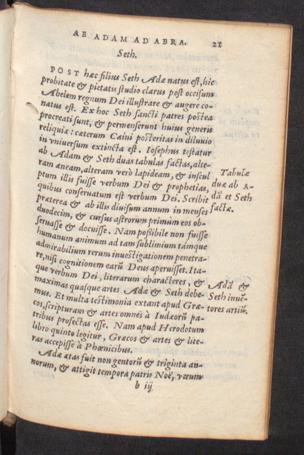 AB ADAM AD ABRA. 21
Seth.
POST hæc filius Seth Adæ natus est, hic
probitate & pietatis studio clarus post occisum
Abelem regnum Dei illustrare & augere co-
natus est. Ex hoc Seth sancti patres postea
procreati sunt, & permanserunt huius generis
reliquiæ: cæterum Caini posteritas in diluuio
in vniuersum extincta est. Iosephus testatur
ab Adam & Seth duas tabulas factas, alte-
ram æream, alteram verò lapideam, & inscul
ptum illis fuisse verbum Dei & prophetias,
quibus conseruatum est verbum Dei. Scribit
præterea & ab illis diuisum annum in menses
duodecim, & cursus astrorum primùm eos ob-
seruasse & docuisse. Nam possibile non fuisse
humanum animum ad tam sublimium támque
admirabilium rerum inuestigationem penetra-
re, nisi cognitionem earũ Deus aperuisset. Ita-
que verbum Dei, literarum characteres, &
maximas quasque artes Adæ & Seth debe-
mus. Et multa testimonia extant apud Græ-
cos, scripturam & artes omneis à Iudæorũ pa-
tribus profectas esse. Nam apud Herodotum
libro quinto legitur, Græcos & artes & lite-
ras accepisse à Phœnicibus.
Adæ ætas fuit nongentorũ & triginta an-
norum, & attigit tempora patris Noë, verum
b iij
Tabulæ
duæ ab A-
dã et Seth
factæ.
Adã &
Seth inuẽ-
tores artiũ.